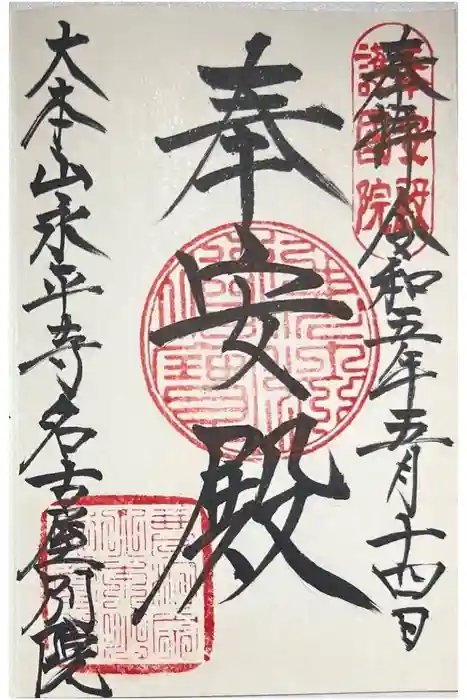 奉拝 令和五年五月十四日
奉安殿
大本山永平寺名古屋別院
護国院